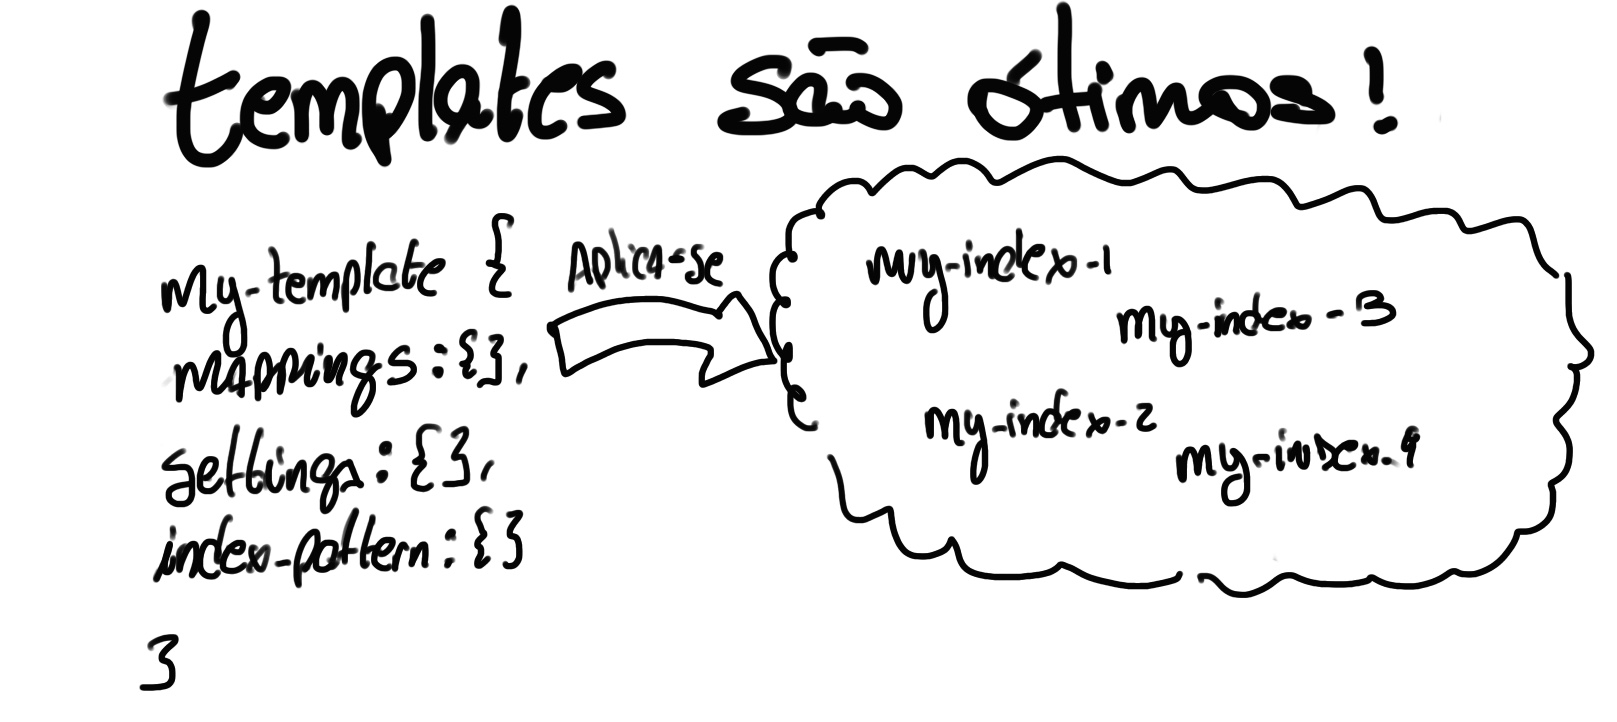 templates são ótimos!
my-template {
mappings:{},
settings:{},
index-pattern:{}
}
Aplica-se
my-index-1
my-index-3
my-index-2
my-index-4